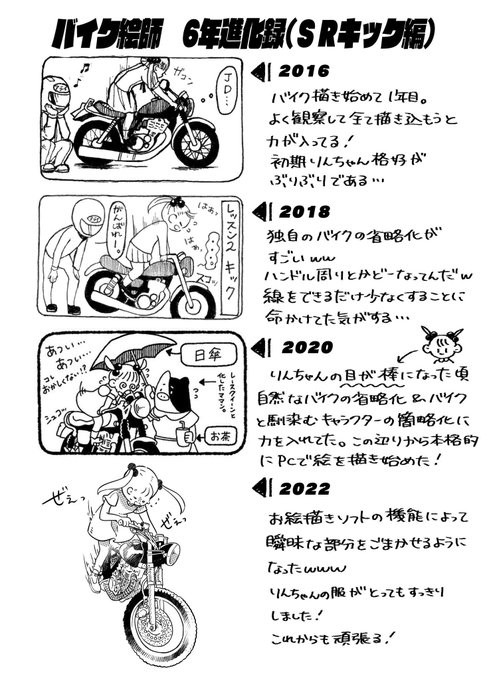 バイク絵師 6年進化録(SRキック編)
ガコン
JD…
2016
バイク描き始めて1年目。
よく観察して全て描き込もうと
力が入ってる!
初期りんちゃん格好が
ぶりぶりである…
がんばれー。
はぁっ
はぁ
レッスン2 キック
スコッ
2018
独自のバイクの省略化が
すごいww
ハンドル周りとかどーなってんだw
線をできるだけ少なくすることに
命かけてた気がする…
あつい…
あつい…
コレ、おかしくない!?
シュコー
日傘
レースクィーンと化したママン。
お茶
2020
りんちゃんの目が棒になった頃
自然なバイクの省略化&バイク
と馴染むキャラクターの簡略化に
力を入れてた。この辺りから本格的
にPCで絵を描き始めた!
ぜぇっ
ぜぇっ
2022
お絵描きソフトの機能によって
曖昧な部分をごまかせるように
なったwww
りんちゃんの服がとってもすっきり
しました!
これからも頑張る!